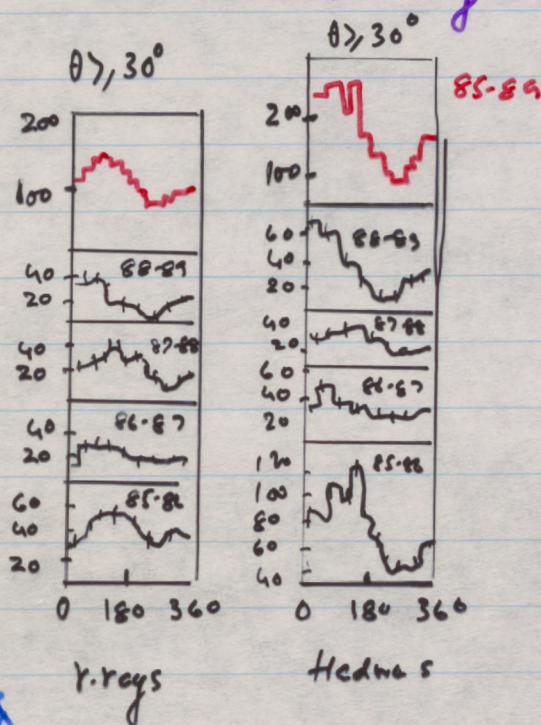 θ ⩾, 30°
200
100
40
20
88-89
40
20
87-88
40
20
86-87
60
40
20
85-86
0 180 360
γ.rays
θ ⩾, 30°
85-89
200
100
60
40
20
88-89
40
20
87-88
60
40
20
86-87
120
100
80
60
40
85-86
0 180 360